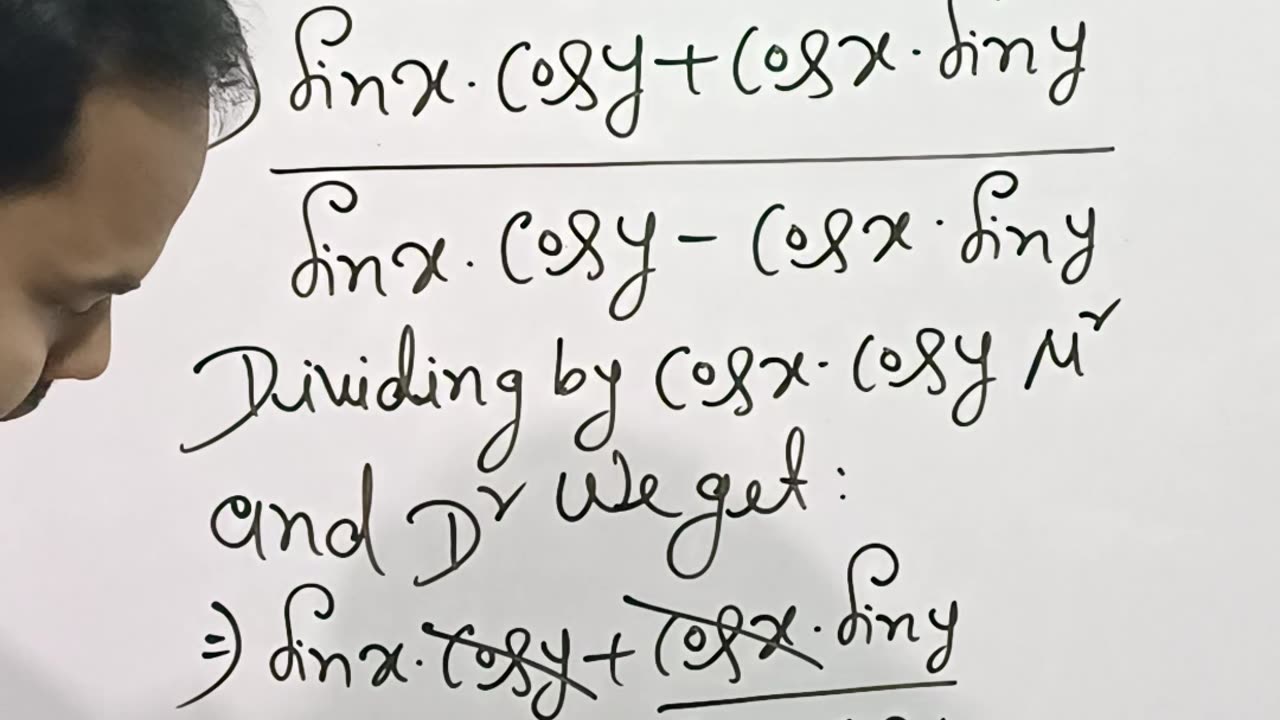 ) Sinx · Cosy + Cosx · Siny
Sinx · Cosy - Cosx · Siny
Dividing by Cosx · Cosy Nʳ
and Dʳ We get :
⇒ Sinx · Cosy + Cosx · Siny